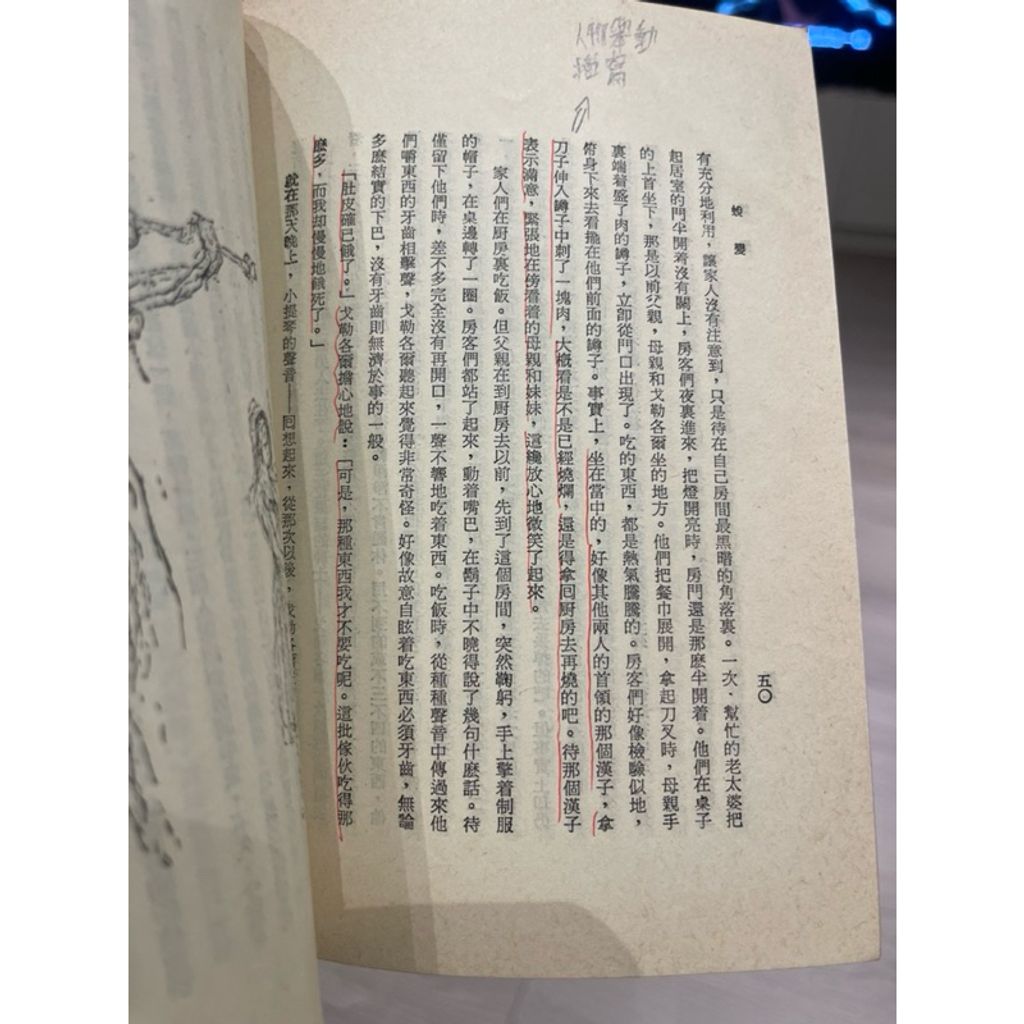 蛻變
五〇
有充分地利用，讓家人沒有注意到，只是待在自己房間最黑暗的角落裏。一次，幫忙的老太婆把
起居室的門半開着沒有關上，房客們夜裏進來，把燈開亮時，房門還是那麼半開着。他們在桌子
的上首坐下，那是以前父親，母親和戈勒各爾坐的地方。他們把餐巾展開，拿起刀叉時，母親手
裏端着盛了肉的罇子，立即從門口出現了。吃的東西，都是熱氣騰騰的。房客們好像檢驗似地，
俯身下來去看擺在他們前面的罇子。事實上，坐在當中的，好像其他兩人的首領的那個漢子，拿
刀子伸入罇子中刺了一塊肉，大概看是不是已經燒爛，還是得拿回厨房去再燒的吧。待那個漢子
表示滿意，緊張地在傍看着的母親和妹妹，這纔放心地微笑了起來。
家人們在厨房裏吃飯。但父親在到厨房去以前，先到了這個房間，突然鞠躬，手上擎着制服
的帽子，在桌邊轉了一圈。房客們都站了起來，動着嘴巴，在鬍子中不曉得說了幾句什麼話。待
僅留下他們時，差不多完全沒有再開口，一聲不響地吃着東西。吃飯時，從種種聲音中傳過來他
們嚼東西的牙齒相擊聲，戈勒各爾聽起來覺得非常奇怪。好像故意自眩着吃東西必須牙齒，無論
多麽結實的下巴，沒有牙齒則無濟於事的一般。
「肚皮確已餓了。」戈勒各爾擔心地說：「可是，那種東西我才不要吃呢。這批傢伙吃得那
麽多，而我却慢慢地餓死了。」
就在那天晚上，小提琴的聲音——回想起來，從那次以後，
人物舉動